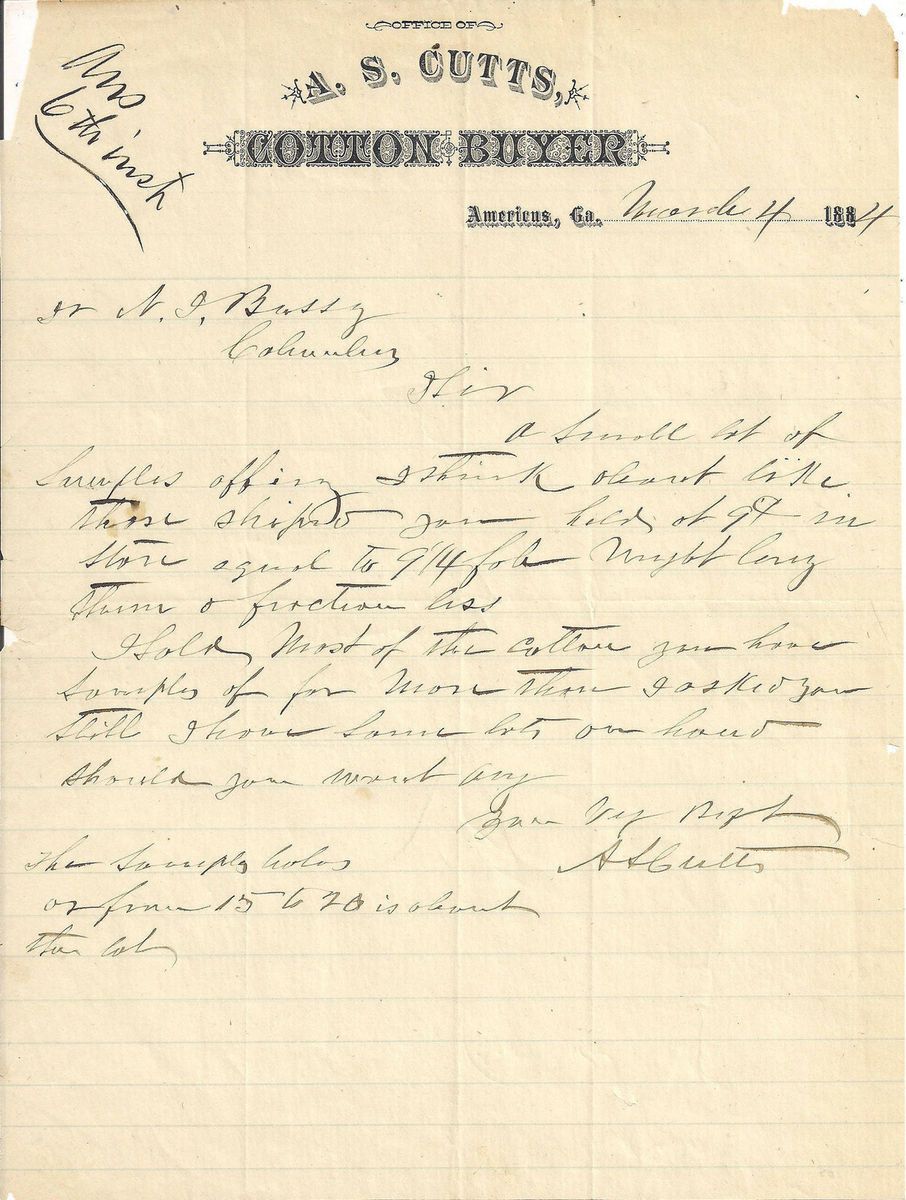 OFFICE OF
A. S. CUTTS,
COTTON BUYER
Ans
6th inst
Americus, Ga. March 4 1884
N. J. Bussy
Columbus
Sir
A small lot of
Samples off I think about like
those shiped you held at 9¢ in
store equal to 9 1/4 fob Might buy
them a fraction less
I sold Most of the cotton you have
samples of for More than I asked you
still I have some lots on hand
should you want any
Your Vey Respt
A S Cutts
The samples
or from 15 to 20 is about
the lot